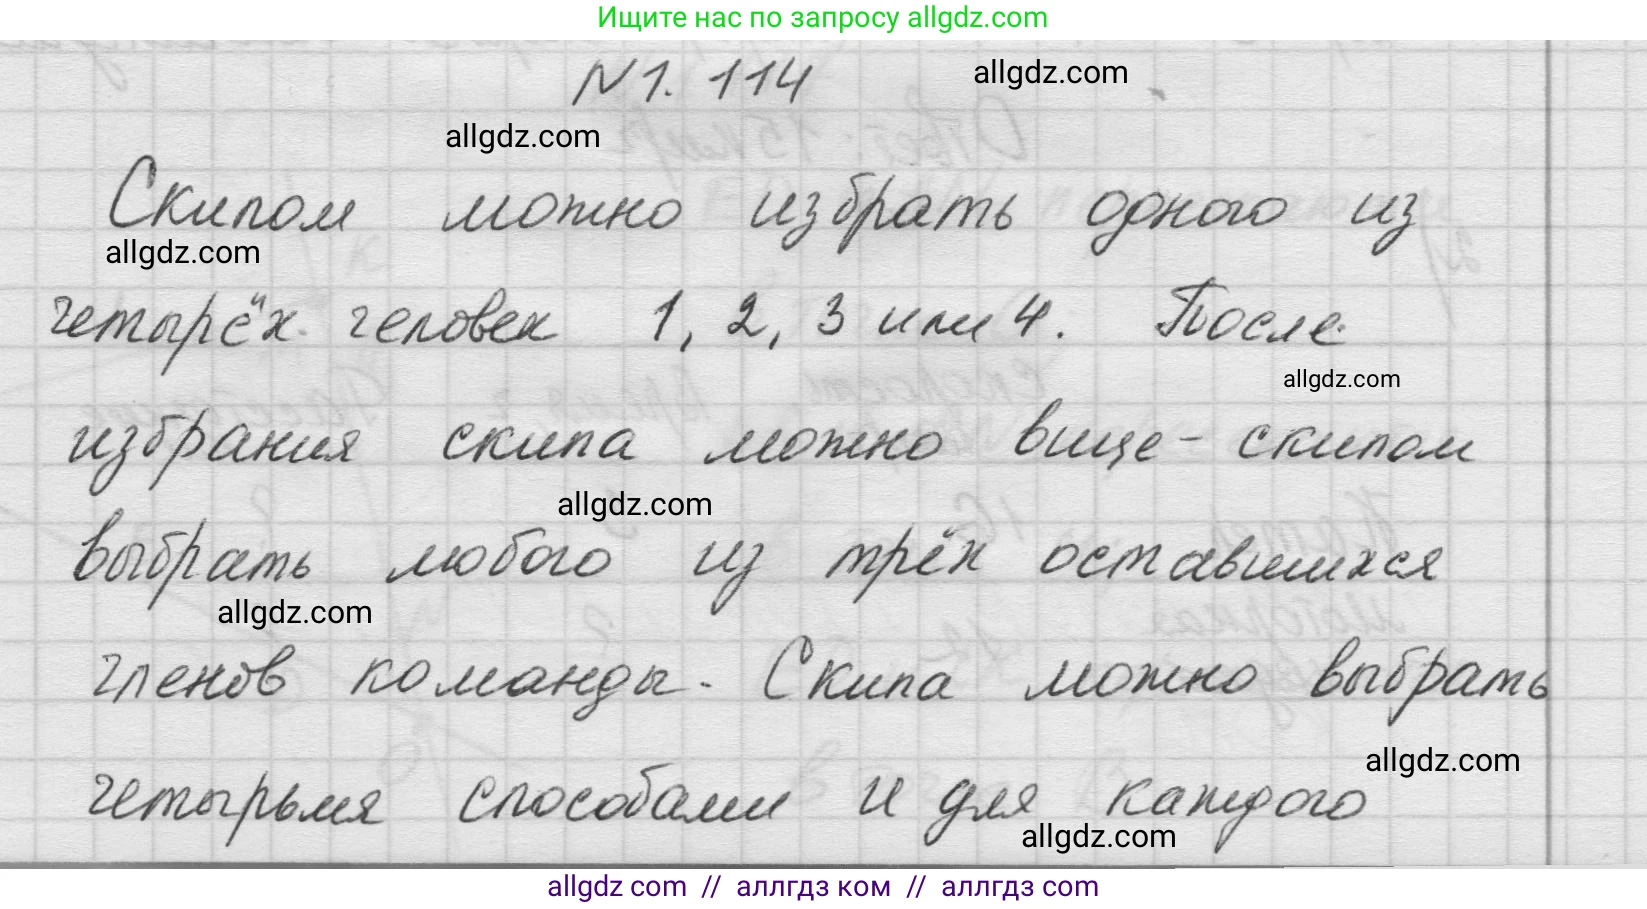 Ищите нас по запросу allgdz.com
N1. 114
allgdz.com
allgdz.com
Скипом можно избрать одного из
allgdz.com
четырёх человек 1, 2, 3 или 4. После
allgdz.com
избрания скипа можно вице-скипом
allgdz.com
выбрать любого из трёх оставшихся
allgdz.com
членов команды. Скипа можно выбрать
allgdz.com
четырьмя способами и для каждого
allgdz.com
allgdz com // аллгдз ком // аллгдз com